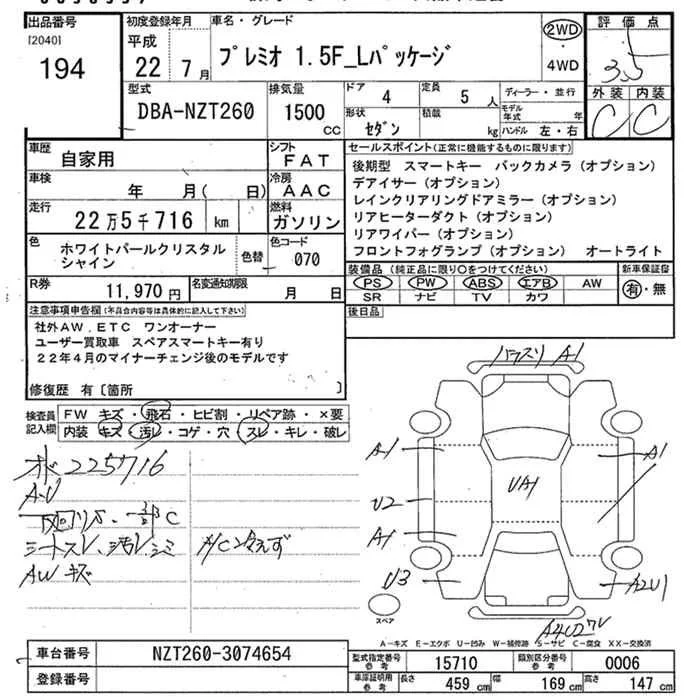 出品番号
[2040]
194
初度登録年月
平成
22 7月
車名・グレード
プレミオ 1.5F_Lパッケージ
2WD
・
4WD
評価点
3.5
外装 内装
C C
型式
DBA-NZT260
排気量
1500
CC
ドア 4
定員 5 人
形状 セダン
積載 kg
ディーラー・並行
モデル年式 年
ハンドル 左・右
車歴 自家用
シフト FAT
車検 年 月( 日)
冷房 AAC
走行 22万5千716 km
燃料 ガソリン
色 ホワイトパールクリスタル
シャイン
色替
色コード 070
R券 11,970円
名変通知期限 月 日
セールスポイント(正常に機能するものに限ります)
後期型 スマートキー バックカメラ(オプション)
デアイサー(オプション)
レインクリアリングドアミラー(オプション)
リアヒーターダクト(オプション)
リアワイパー(オプション)
フロントフォグランプ(オプション) オートライト
装備品(純正品に限り○をつけてください)
PS PW ABS エアB AW
SR ナビ TV カワ
新車保証書
有・無
後日品
注意事項申告欄(不具合内容等は具体的に記入して下さい)
社外AW.ETC ワンオーナー
ユーザー買取車 スペアスマートキー有り
22年4月のマイナーチェンジ後のモデルです
修復歴 有〔箇所 〕
検査員
記入欄
FW キズ・飛石・ヒビ割・リペア跡・×要
内装 キズ・汚レ・コゲ・穴・スレ・キレ・破レ
225716
A・U
下回りS・一部C
シートスレ、汚レ、シミ
A/C冷えず
AWキズ
A1
A1
A1
U2
UA1
A1
U3
A2U1
A4U2
スペア
A－キズ E－エクボ U－凹み W－補修跡 S－サビ C－腐食 XX－交換済
車台番号 NZT260-3074654
登録番号
型式指定番号
参考
15710
類別区分番号
参考
0006
車庫証明用
参考
長さ 459 cm
幅 169 cm
高さ 147 cm